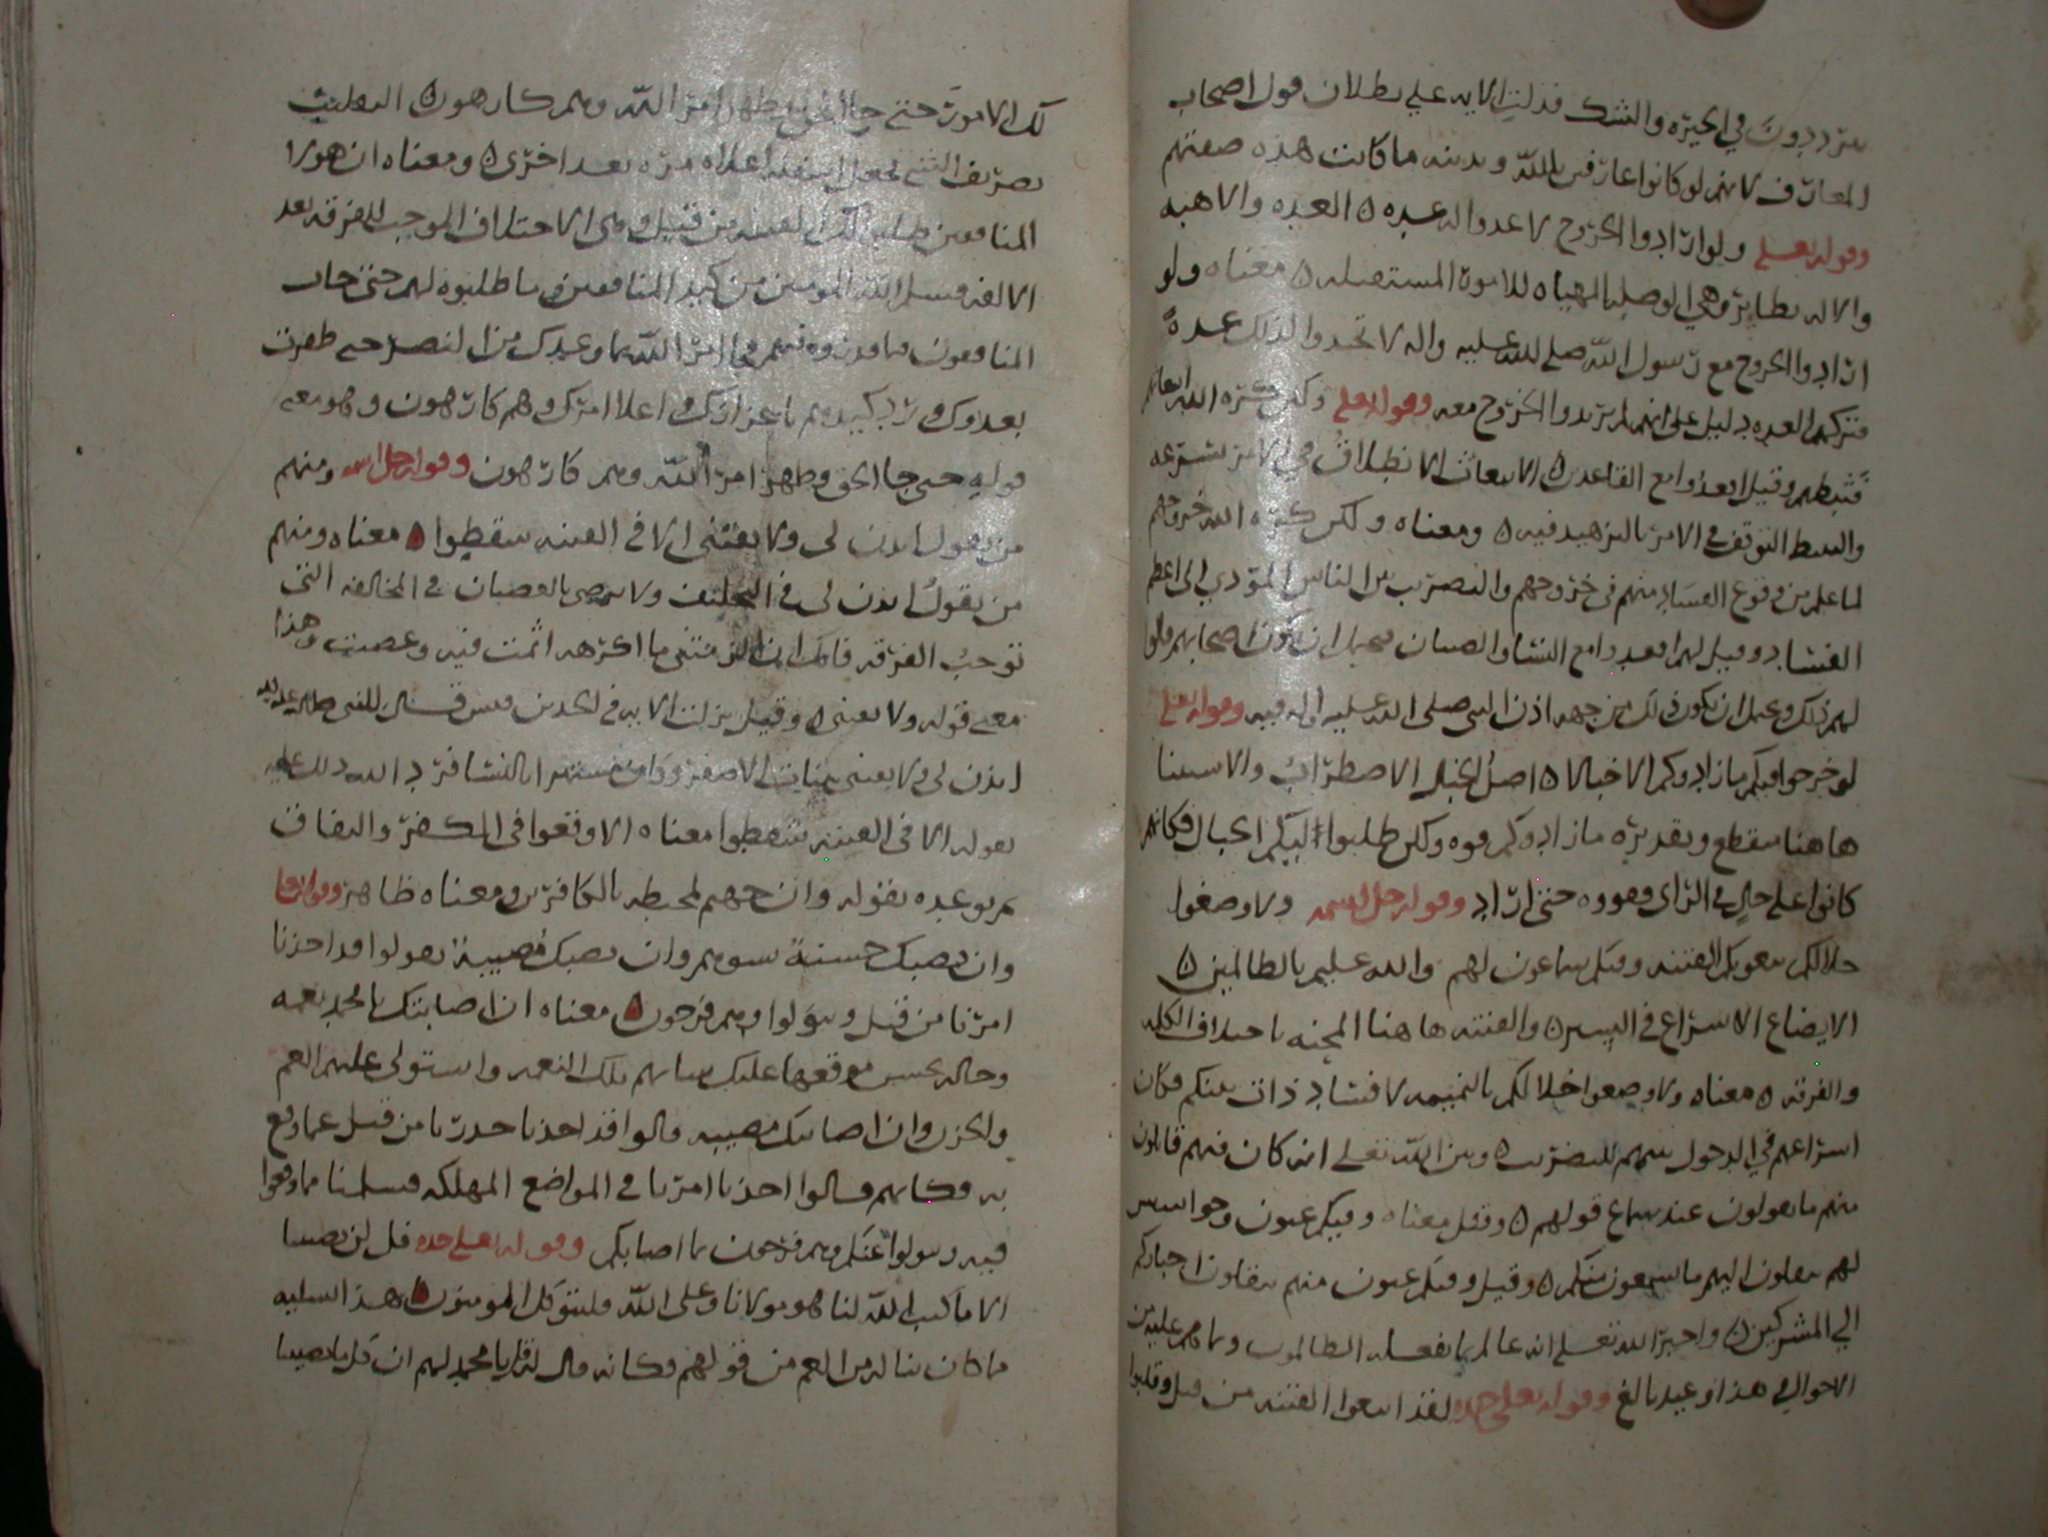 يترددون في الحيره والشك فدلت الايه علي بطلان قول اصحاب
المعارف لانهم لو كانوا عارفين بالله وبدينه ما كانت هذه صفتهم
وقوله تعلى ولو ارادوا الخروج لاعدوا له عده ه العده والاهبه
والاله نظاير وهي الوصله المهياه للامور المستقبله ه معناه ولو
ارادوا الخروج مع رسول الله صلى الله عليه واله لاتخذوا لذلك عدة
فتركهم العده دليل على انهم لم يريدوا الخروج معه وقوله تعلى ولكن كره الله انبعاثهم
فثبطهم وقيل اقعدوا مع القاعدين ه الانبعاث الانطلاق في الامر بسرعه
والتثبيط التوقف في الامر بالتزهيد فيه ه ومعناه ولكن كره الله خروجهم
لما علم من وقوع الفساد منهم في خروجهم والتضريب بين الناس المؤدي الى اعظم
الفساد وقيل لهم اقعدوا مع النسا والصبيان يحتمل ان يكون اصحابهم قالوا
لهم ذلك ويحتمل ان يكون ذلك من جهه اذن النبي صلى الله عليه واله فيه وقوله تعلى
لو خرجوا فيكم ما زادوكم الا خبالا ه اصل الخبل الاضطراب والاستثنا
هاهنا منقطع وتقديره ما زادوكم قوه ولكن طلبوا لكم الخبال فكانهم
كانوا على حال في الراى وقووه حتى اراد وقوله جل اسمه ولاوضعوا
خلالكم يبغونكم الفتنه وفيكم سماعون لهم والله عليم بالظالمين ه
الايضاع الاسراع في السير ه والفتنه هاهنا المحنه باختلاف الكلمه
والفرقه ه معناه ولاوضعوا خلالكم بالنميمه لافساد ذات بينكم فكان
اسراعهم في الدخول بينهم للتضريب ه وبين الله تعلى انه كان فيهم قابلون
منهم ما يقولون عند سماع قولهم ه وقيل معناه وفيكم عيون وجواسيس
لهم ينقلون اليهم ما يسمعون منكم ه وقيل وفيكم عيون منهم ينقلون اخباركم
الي المشركين ه واخبر الله تعلى انه عالم بما يفعله الظالمون وما هم عليه من
الاحوال في هذا وعيد بالغ وقوله تعلى جده لقد ابتغوا الفتنه من قبل وقلبوا
لك الامور حتى جا الحق وظهر امر الله وهم كارهون ه التقليب
تصريف الشي بجعل اسفله اعلاه مره بعد اخرى ه ومعناه ان هولا
المنافقين طلبوا لك الفتنه من قبل وهى الاختلاف الموجب للفرقه بعد
الالفه فسلم الله المومنين من كيد المنافقين وما طلبوه لهم حتى خاب
المنافقون مما قدروه فيهم في امر الله بما وعدك من النصر حتى ظفرت
بعدوك ورد كيدهم باعزازك واعلا امرك وهم كارهون وهو معنى
قوله حتى جا الحق وظهر امر الله وهم كارهون وقوله جل اسمه ومنهم
من يقول ايذن لى ولا تفتنى الا في الفتنه سقطوا ه معناه ومنهم
من يقول ايذن لى في التخلف ولا تفتنى بالعصيان في المخالفه التى
توجب الفرقه فانك ان الزمتنى ما اكرهه اثمت فيه وعصيت وهذا
معنى قوله ولا تفتنى ه وقيل نزلت الايه في الجد بن قيس قال للنبى صلى الله عليه
ايذن لى ولا تفتنى ببنات الاصفر وكان مستهترا بالنسا فرد الله ذلك عليه
بقوله الا في الفتنه سقطوا معناه الا وقعوا في الكفر والنفاق
ثم توعده بقوله وان جهنم لمحيطه بالكافرين ومعناه ظاهر وقوله تعلى
وان تصبك حسنة تسوهم وان تصبك مصيبة يقولوا قد اخذنا
امرنا من قبل ويتولوا وهم فرحون ه معناه ان اصابتك يا محمد نعمه
وحاله يحسن موقعها عليك ساتهم تلك النعمه واستولى عليهم الغم
والحزن وان اصابتك مصيبه قالوا قد اخذنا حذرنا من قبل عما وقع
به فكانهم قالوا اخذنا امرنا في المواضع المهلكه فسلمنا مما وقعوا
فيه وتولوا عنكم وهم فرحون بما اصابكم وقوله تعلى جده قل لن يصيبنا
الا ما كتب الله لنا هو مولانا وعلى الله فليتوكل المومنون ه هذا تسليه
ما كان يناله من الغم من قولهم وكانه قال له قل يا محمد لهم ان كل ما يصيبنا